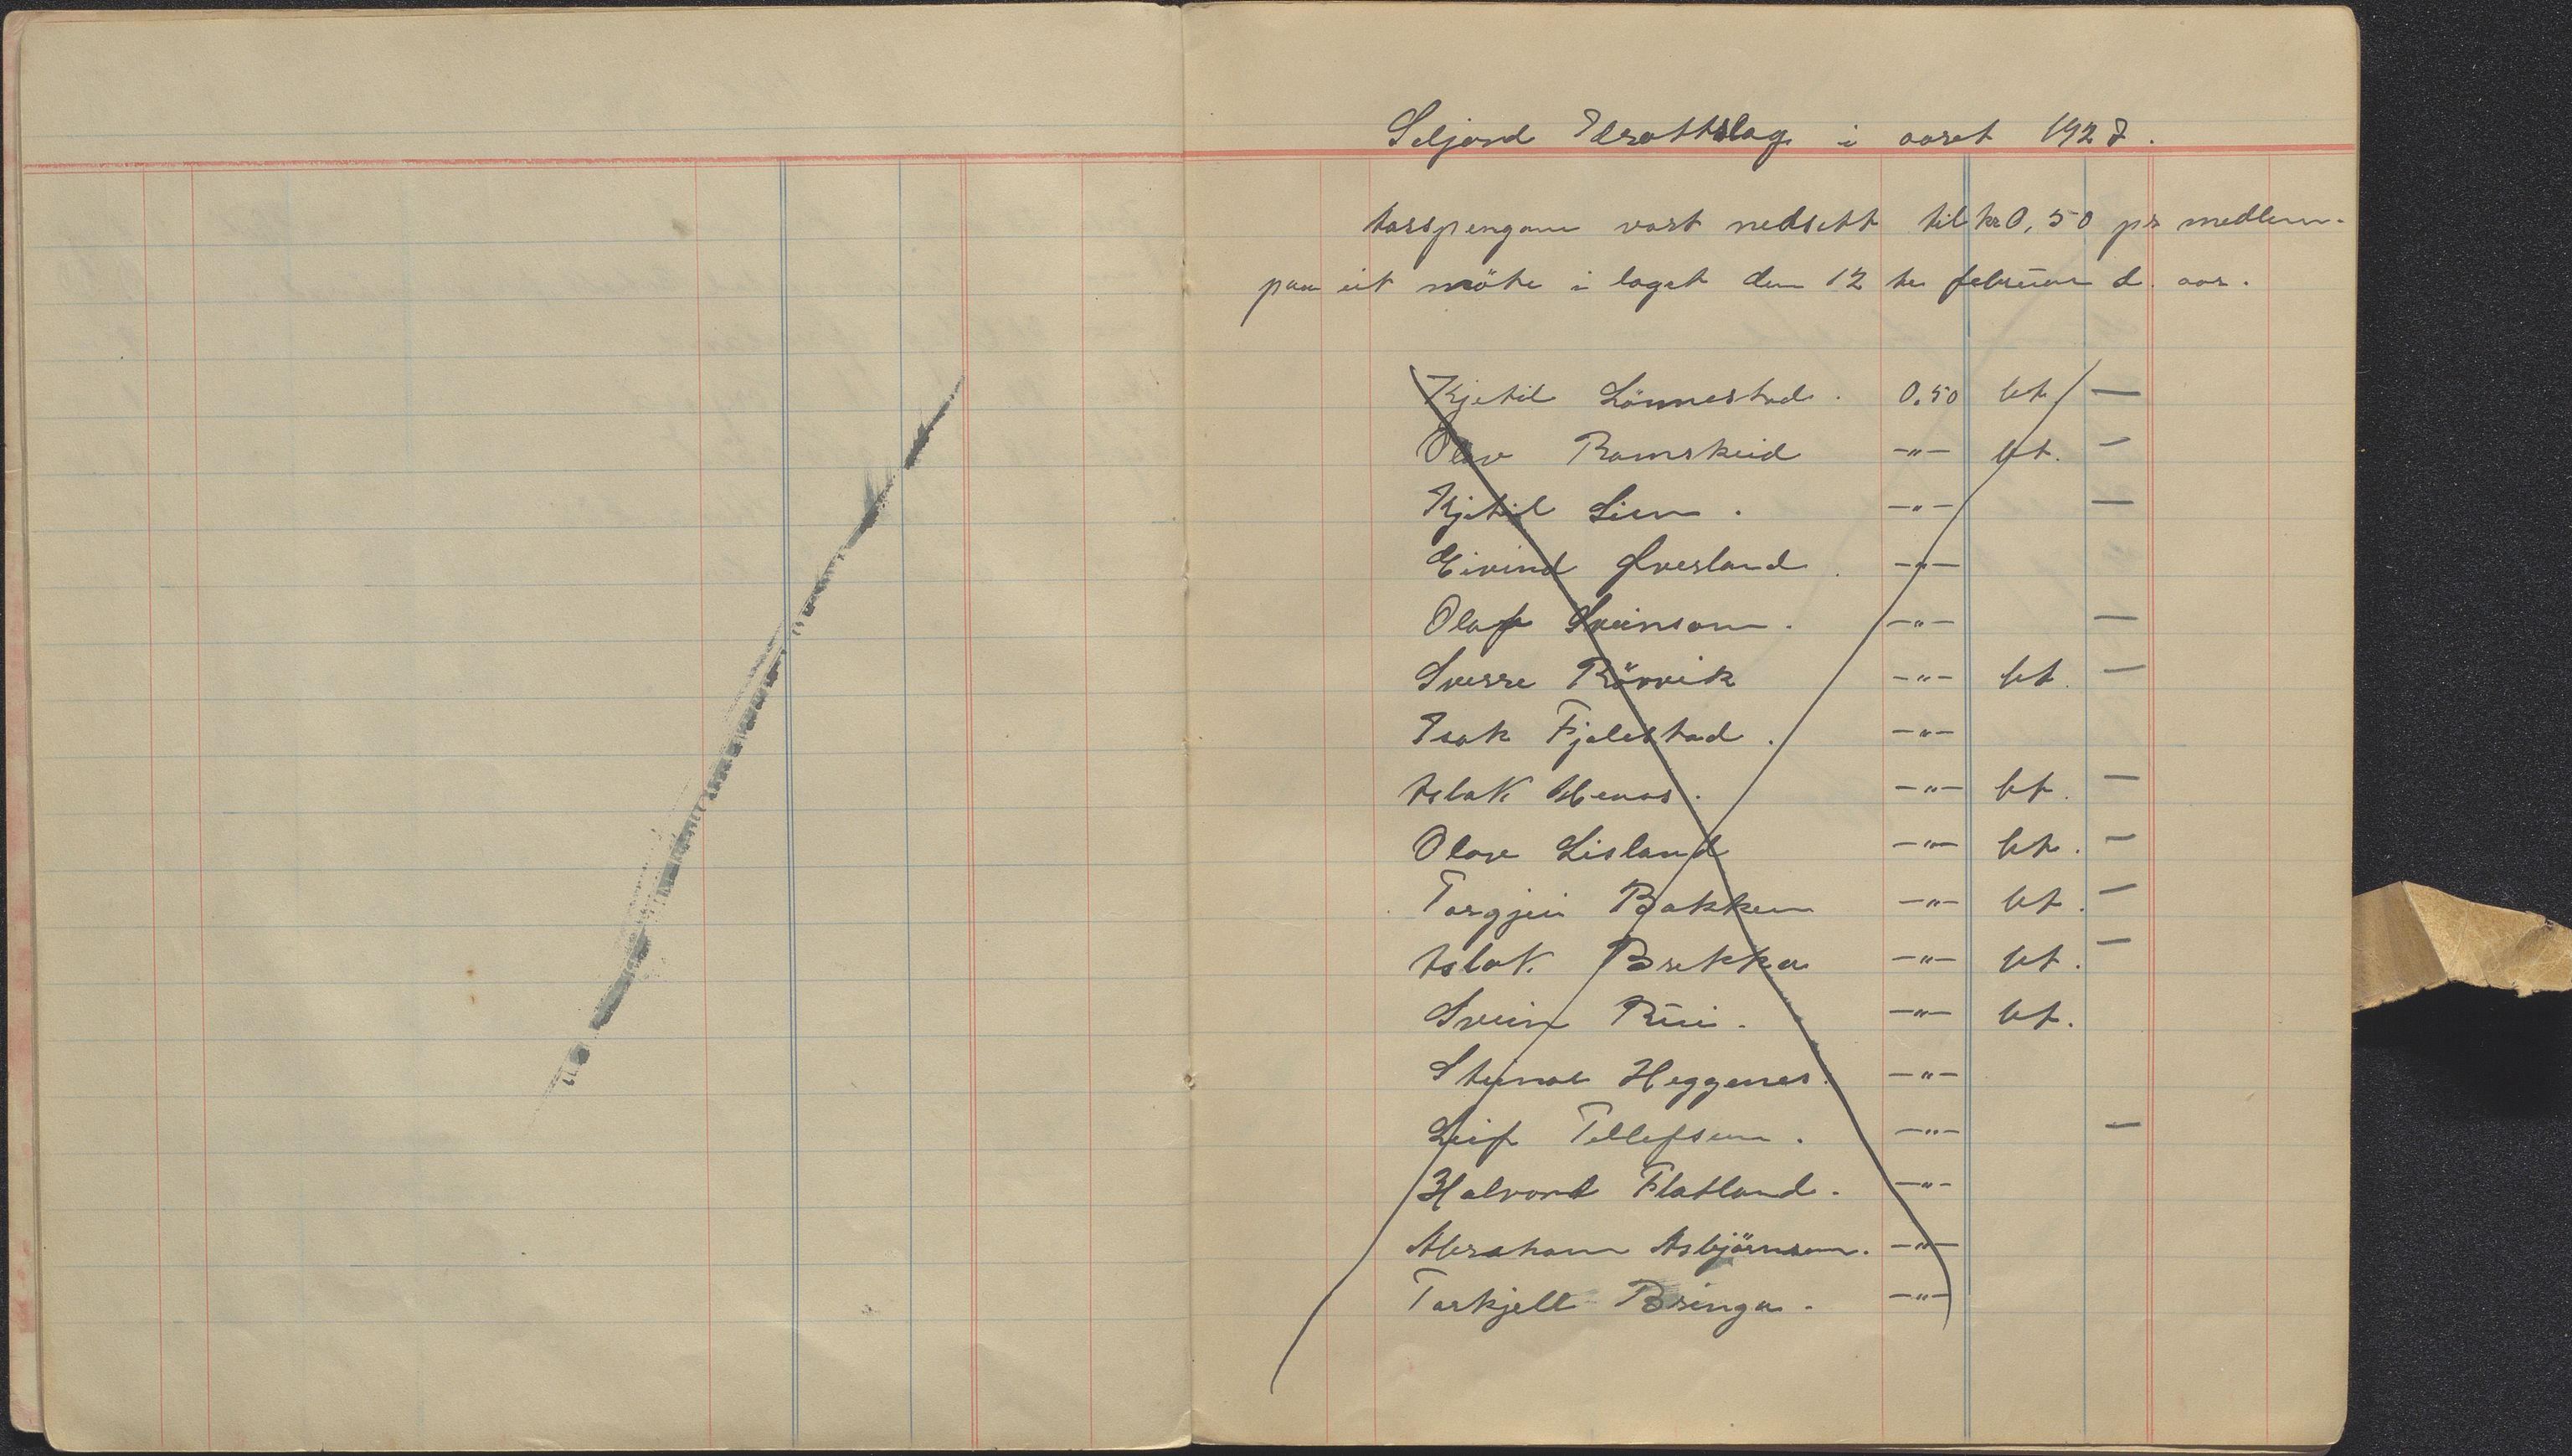 Seljord Idrottslag i aaret 1927.
Aarspengane vart nedsett til kr 0,50 pr medlem.
paa eit möte i laget den 12 te februar d. aar.
Kjetil Lönnestad. 0.50 bt. —
Olav Ramskeid —"— bt. —
Kjetil Lien. —"— —
Eivind Øverland. —"—
Olaf Sveinson. —"— —
Sverre Rörvik —"— bt. —
Isak Fjelestad. —"—
Aslak Henas. —"— bt. —
Olav Lisland —"— bt. —
Torgjei Bakken —"— bt. —
Aslak Brekka —"— bt. —
Svein Rui. —"— bt.
Steinar Heggenes. —"—
Leif Tellefsen. —"— —
Halvord Flatland. —"—
Abraham Asbjörnsen. —"—
Torkjell Bringa. —"—